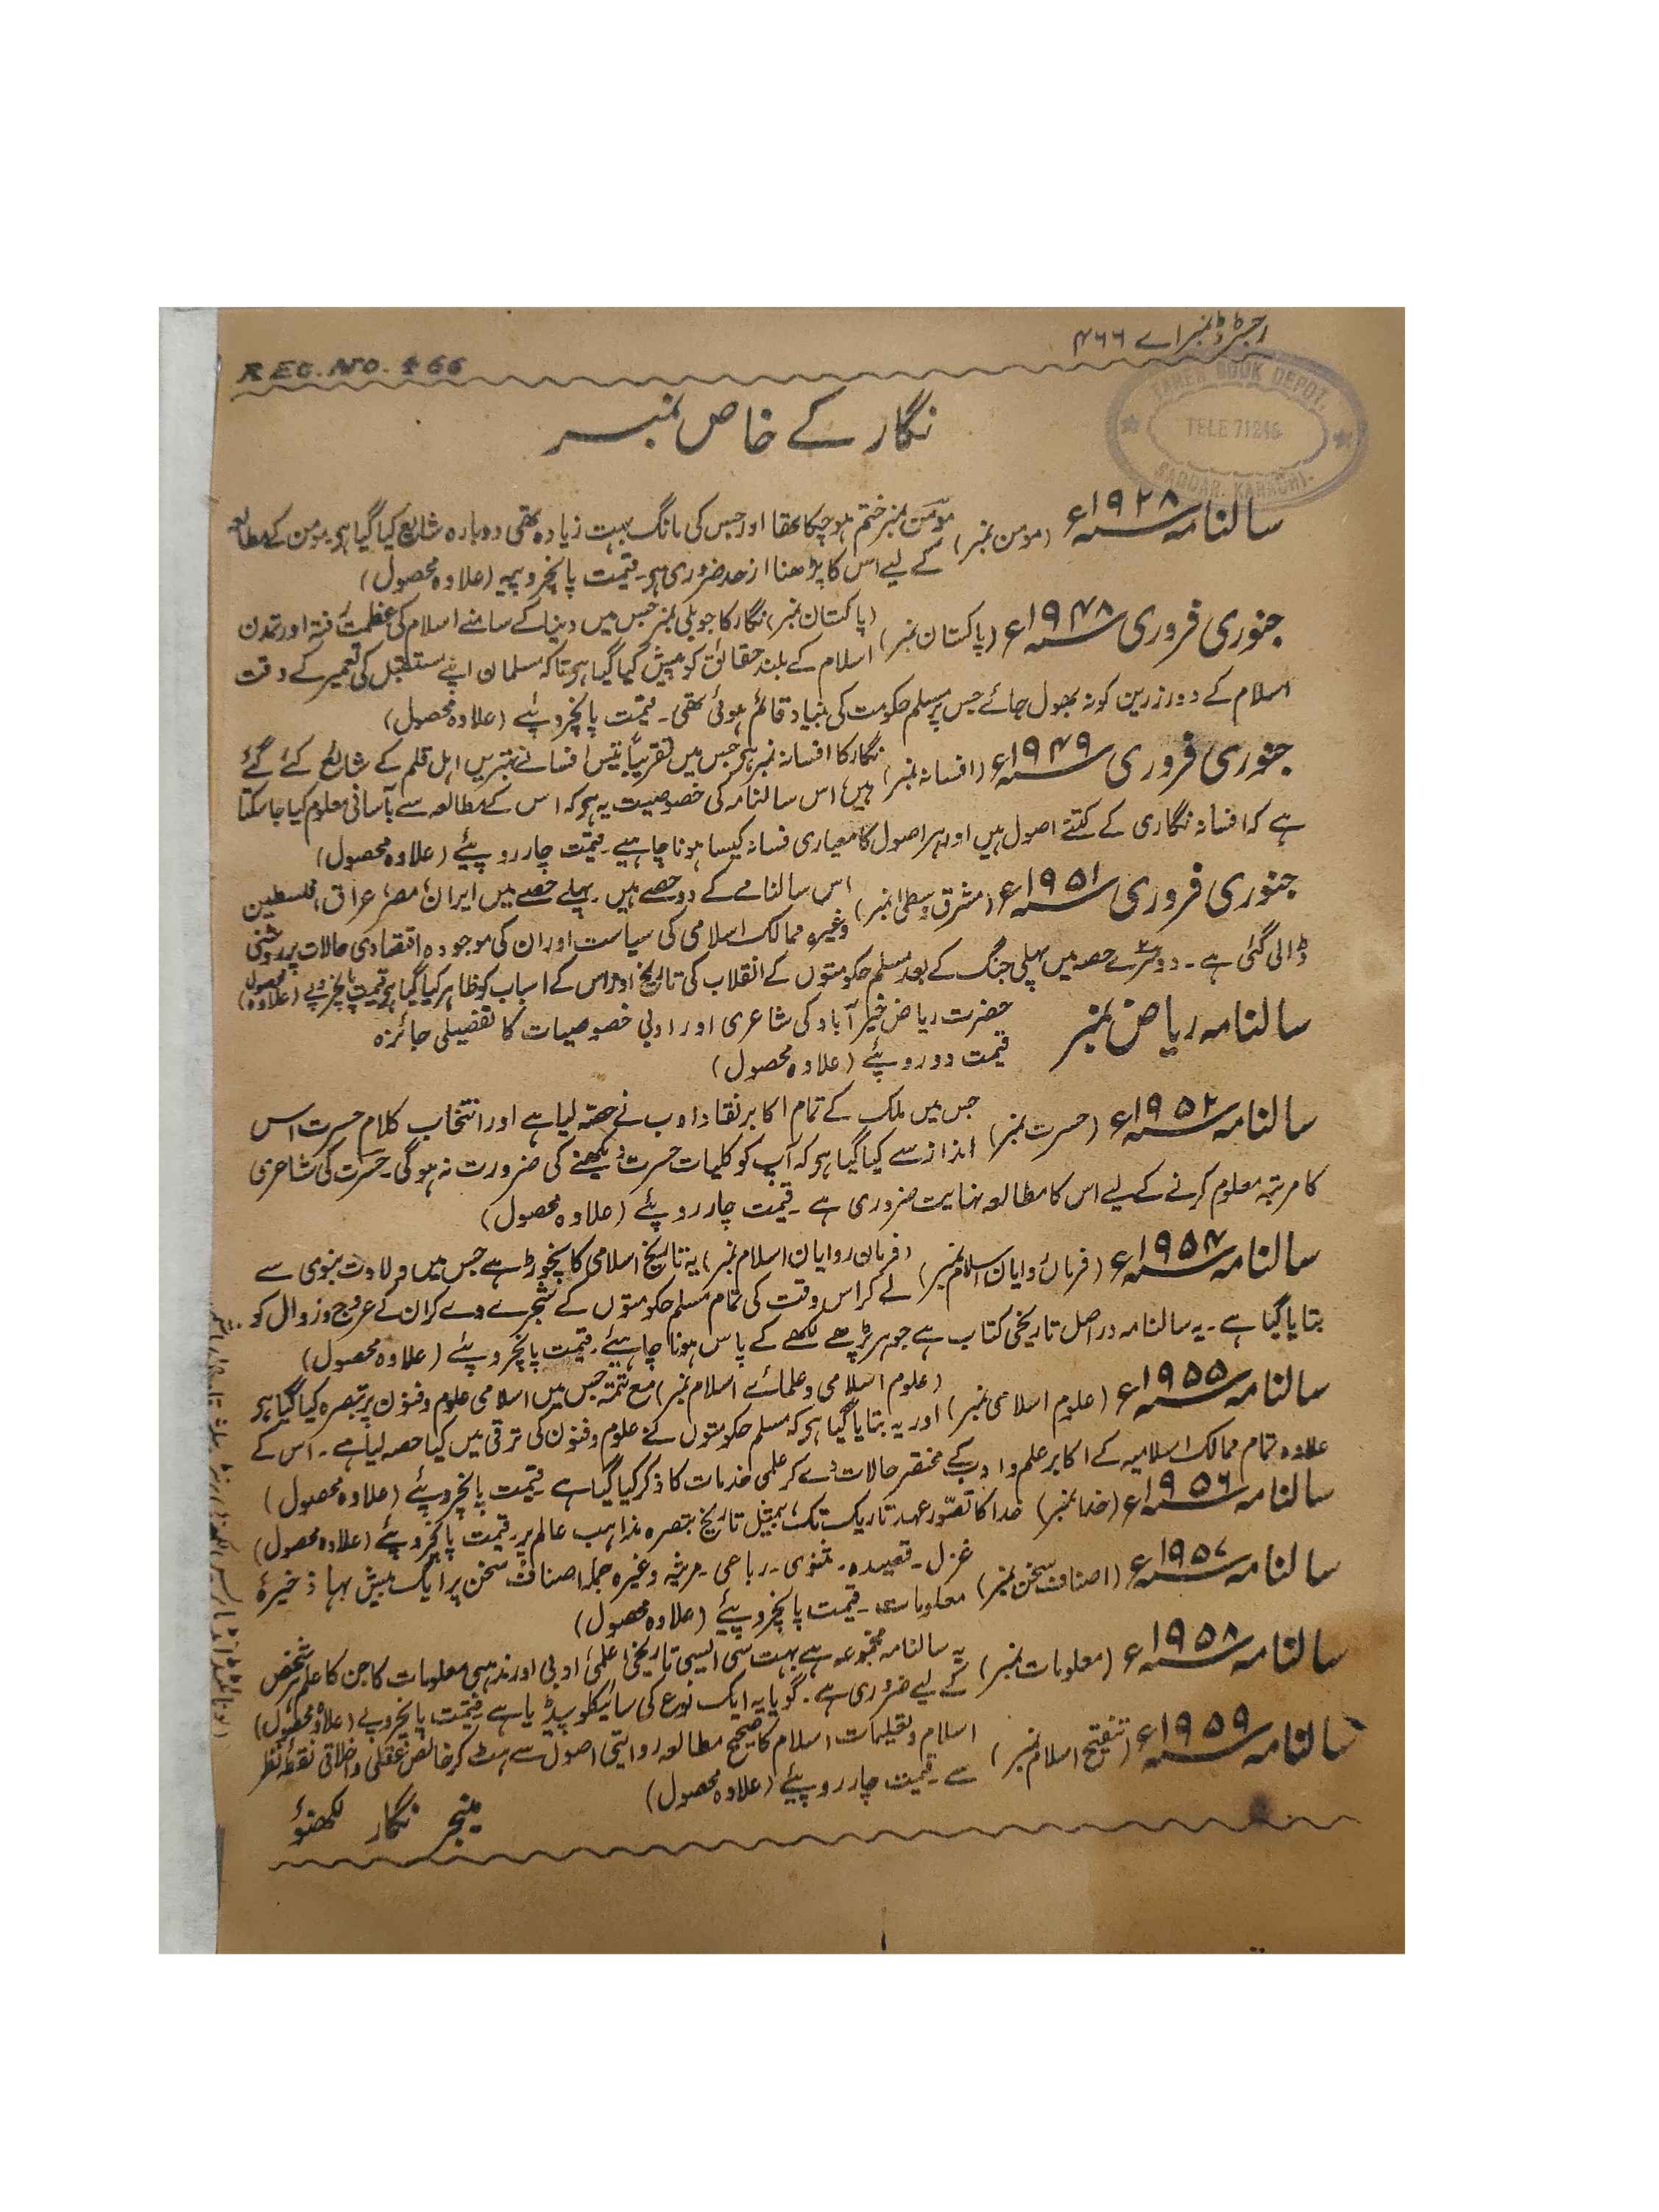 رجسٹرڈ نمبر اے ۴۶۶
REG. NO. 466
TAHER BOOK DEPOT.
TELE 71246
SADDAR. KARACHI.
نگار کے خاص نمبر
سالنامہ ۱۹۲۸ء (مومن نمبر) مومن نمبر ختم ہوچکا تھا اور جس کی مانگ بہت زیادہ تھی دوبارہ شایع کیا گیا ہی۔ مومن کے مطالعہ
کے لیے اس کا پڑھنا از حد ضروری ہی۔ قیمت پانچروپیہ (علاوہ محصول)
جنوری فروری ۱۹۴۸ء (پاکستان نمبر) (پاکستان نمبر) نگار کا جوبلی نمبر جس میں دنیا کے سامنے اسلام کی عظمت رفتہ اور تمدن
اسلام کے بلند حقائق کو پیش کیا گیا ہی تاکہ مسلمان اپنے مستقبل کی تعمیر کے وقت
اسلام کے دور زرین کو نہ بھول جائے جس پر مسلم حکومت کی بنیاد قائم ہوئی تھی۔ قیمت پانچروپئے (علاوہ محصول)
جنوری فروری ۱۹۴۹ء (افسانہ نمبر) نگار کا افسانہ نمبر ہی جس میں تقریباً تیس افسانے بہترین اہل قلم کے شایع کئے گئے
ہیں، اس سالنامہ کی خصوصیت یہ ہی کہ اس کے مطالعہ سے بآسانی معلوم کیا جاسکتا
ہے کہ افسانہ نگاری کے کتنے اصول ہیں اور ہر اصول کا معیاری فسانہ کیسا ہونا چاہیے۔ قیمت چار روپیئے (علاوہ محصول)
جنوری فروری ۱۹۵۱ء (مشرق وسطیٰ نمبر) اس سالنامے کے دو حصے ہیں۔ پہلے حصے میں ایران، مصر، عراق، فلسطین
وغیرہ ممالک اسلامی کی سیاست اور ان کی موجودہ اقتصادی حالات پر روشنی
ڈالی گئی ہے۔ دوسرے حصہ میں پہلی جنگ کے بعد مسلم حکومتوں کے انقلاب کی تاریخ اور اس کے اسباب کو ظاہر کیا گیا ہی قیمت پانچروپے (علاوہ محصول)
سالنامہ ریاض نمبر حضرت ریاض خیر آباد کی شاعری اور ادبی خصوصیات کا تفصیلی جائزہ
قیمت دو روپئے (علاوہ محصول)
سالنامہ ۱۹۵۲ء (حسرت نمبر) جس میں ملک کے تمام اکابر نقاد ادب نے حصّہ لیا ہے اور انتخاب کلام حسرت اس
انداز سے کیا گیا ہی کہ آپ کو کلیات حسرت دیکھنے کی ضرورت نہ ہوگی۔ حسرت کی شاعری
کا مرتبہ معلوم کرنے کے لیے اس کا مطالعہ نہایت ضروری ہے۔ قیمت چار روپئے (علاوہ محصول)
سالنامہ ۱۹۵۴ء (فرمانروایان اسلام نمبر) (فرمان روایان اسلام نمبر) یہ تاریخ اسلامی کا نچوڑ ہے جس میں ولادت نبوی سے
لے کر اس وقت کی تمام مسلم حکومتوں کے شجرے دے کر ان کے عروج و زوال کو
بتایا گیا ہے۔ یہ سالنامہ دراصل تاریخی کتاب ہے جو ہر پڑھے لکھے کے پاس ہونا چاہیئے۔ قیمت پانچروپئے (علاوہ محصول)
سالنامہ ۱۹۵۵ء (علوم اسلامی نمبر) (علوم اسلامی و علمائے اسلام نمبر) مع تتمّہ جس میں اسلامی علوم و فنون پر تبصرہ کیا گیا ہی
اور یہ بتایا گیا ہی کہ مسلم حکومتوں نے علوم و فنون کی ترقی میں کیا حصہ لیا ہے۔ اس کے
علاوہ تمام ممالک اسلامیہ کے اکابر علم و ادب کے مختصر حالات دے کر علمی خدمات کا ذکر کیا گیا ہے۔ قیمت پانچروپئے (علاوہ محصول)
سالنامہ ۱۹۵۶ء (خدا نمبر) خدا کا تصوّر عہد تاریک تک، بمثیل تاریخ تبصرہ مذاہب عالم پر۔ قیمت پانچروپئے (علاوہ محصول)
سالنامہ ۱۹۵۷ء (اصناف سخن نمبر) غزل۔ قصیدہ۔ مثنوی۔ رباعی۔ مرثیہ وغیرہ جملہ اصناف سخن پر ایک بیش بہا ذخیرۂ
معلومات۔ قیمت پانچروپیئے (علاوہ محصول)
سالنامہ ۱۹۵۸ء (معلومات نمبر) یہ سالنامہ مجموعہ ہے بہت سی ایسی تاریخی، علمی، ادبی اور مذہبی معلومات کا جن کا علم ہر شخص
کے لیے ضروری ہے۔ گویا یہ ایک نوع کی سائیکلوپیڈیا ہے۔ قیمت پانچروپے (علاوہ محصول)
سالنامہ ۱۹۵۹ء (تنقیح اسلام نمبر) اسلام و تعلیمات اسلام کا صحیح مطالعہ روایتی اصول سے ہٹ کر خالص عقلی و اخلاقی نقطۂ نظر
سے۔ قیمت چار روپیئے (علاوہ محصول)
منیجر نگار لکھنؤ